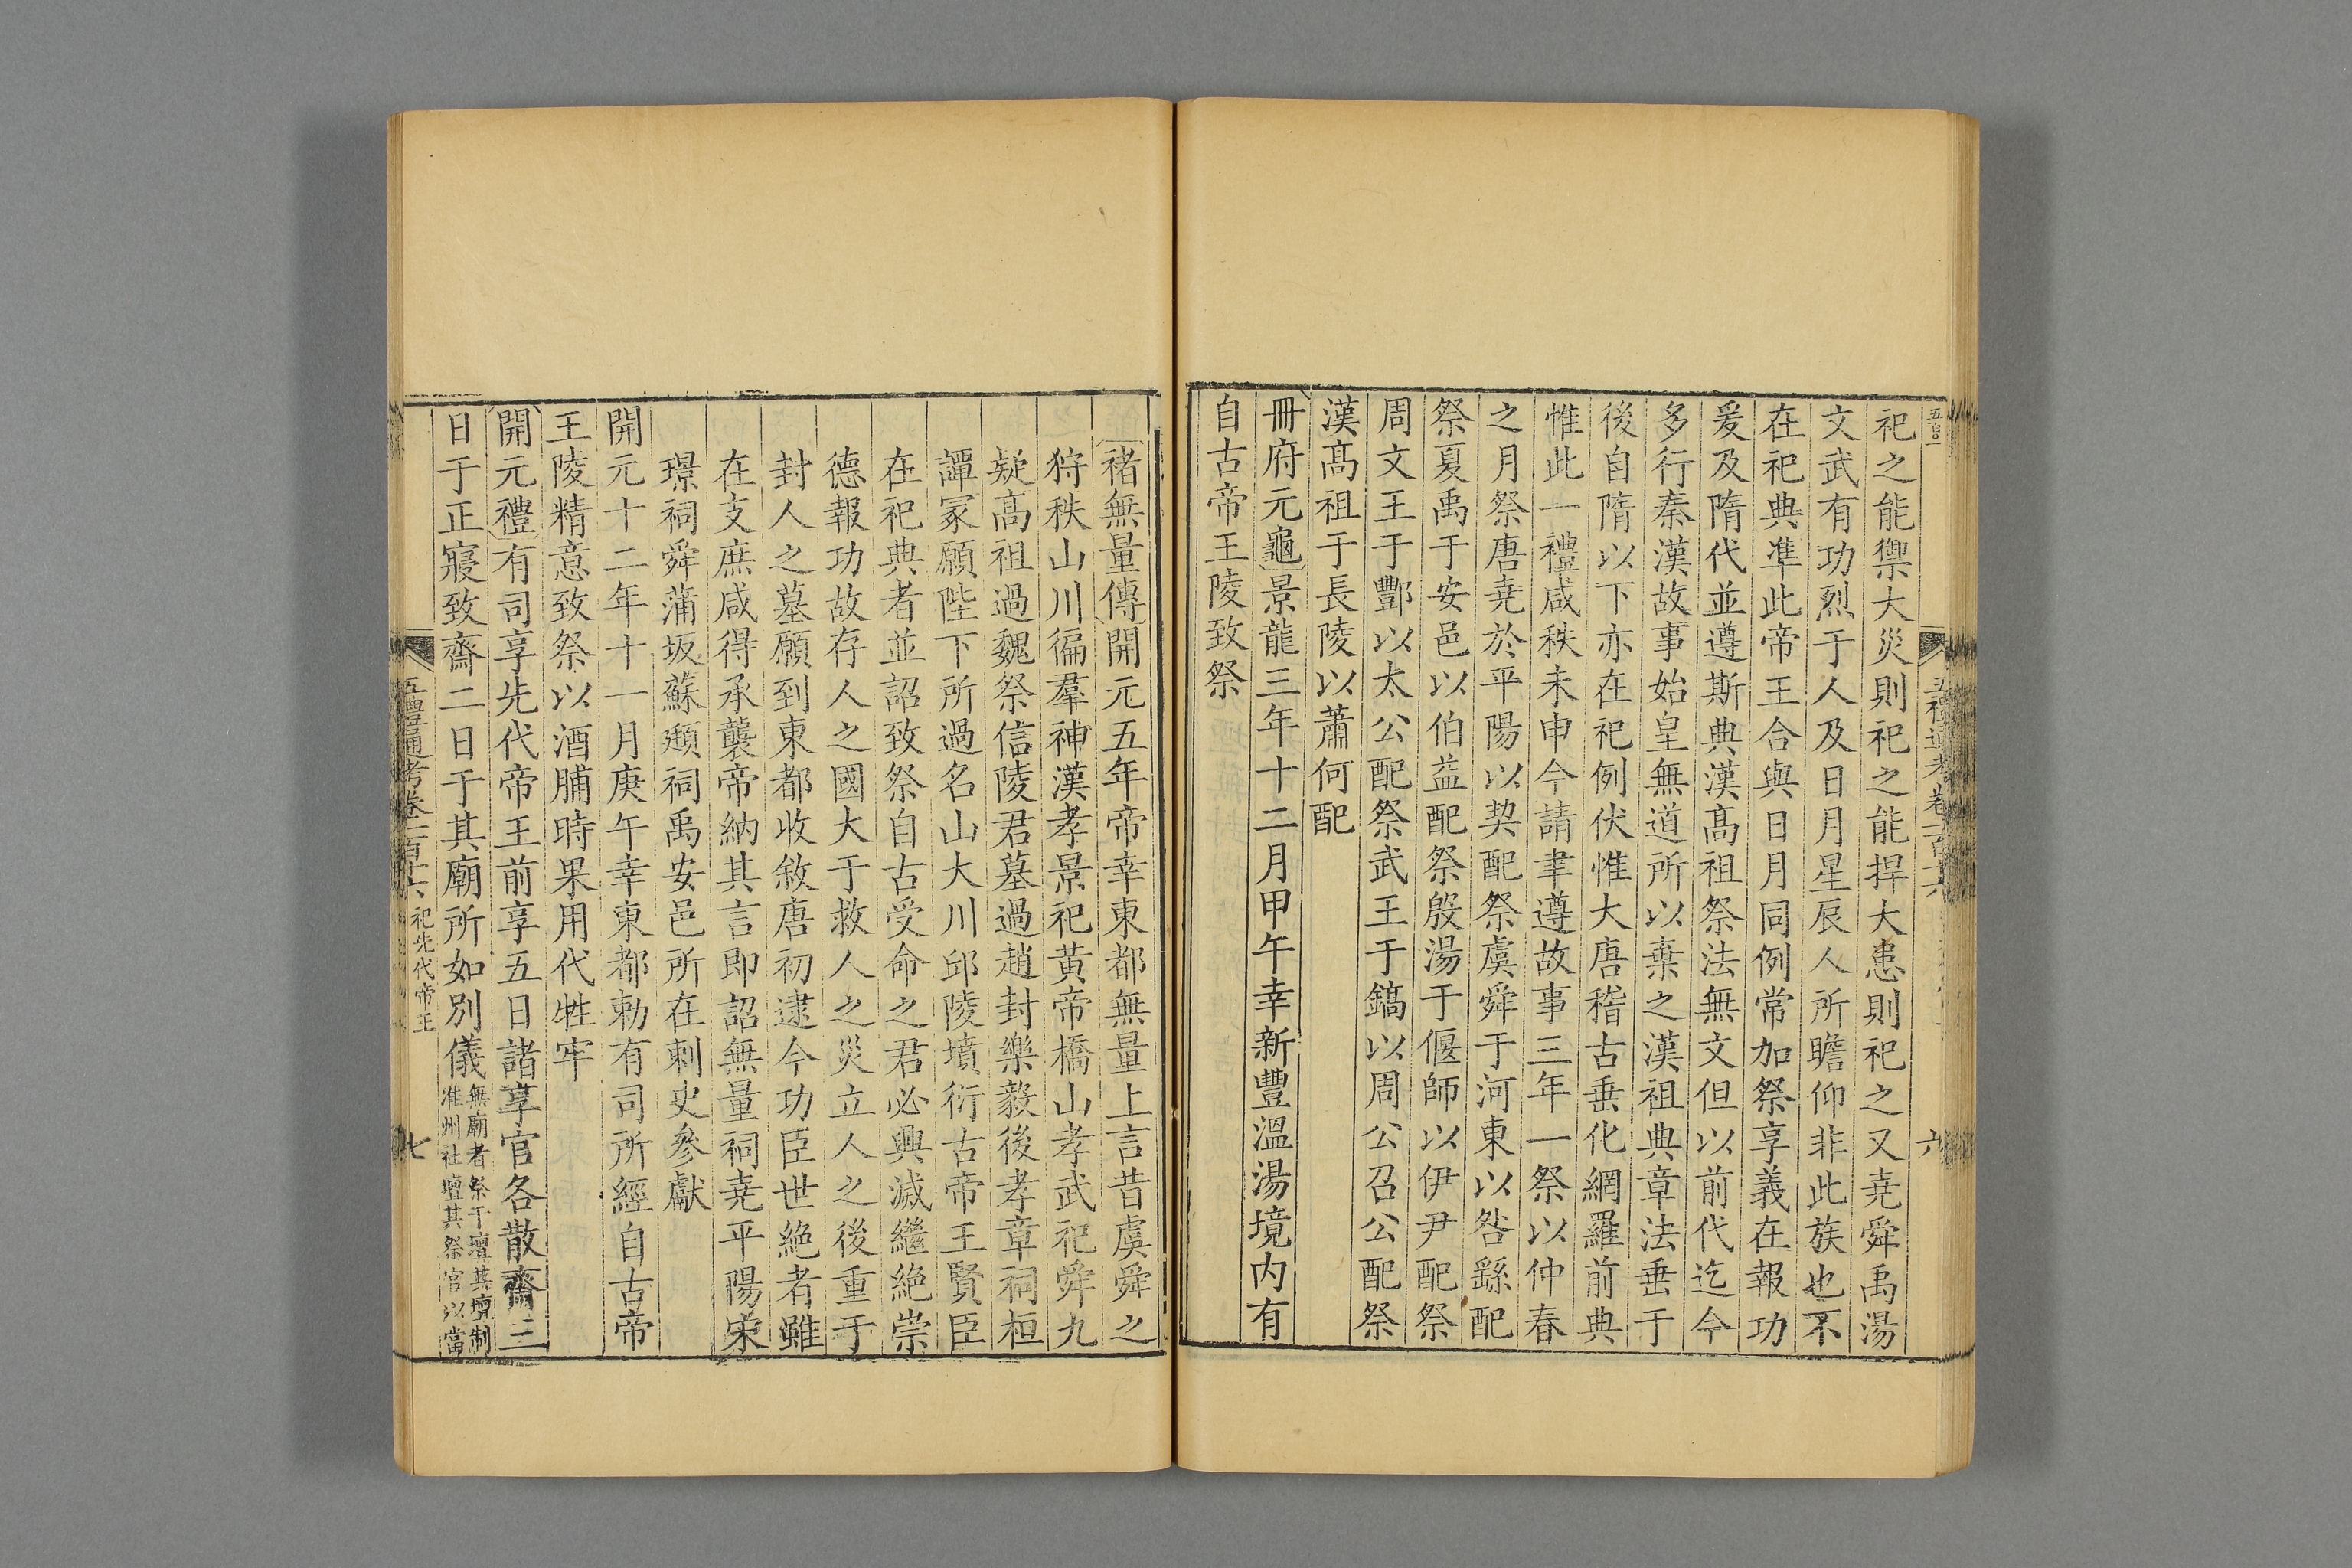 祀之能禦大災則祀之能捍大患則祀之又堯舜禹湯
文武有功烈于人及日月星辰人所瞻仰非此族也不
在祀典準此帝王合與日月同例常加祭享義在報功
爰及隋代並遵斯典漢高祖祭法無文但以前代迄今
多行秦漢故事始皇無道所以棄之漢祖典章法垂于
後自隋以下亦在祀例伏惟大唐稽古垂化網羅前典
惟此一禮咸秩未申今請聿遵故事三年一祭以仲春
之月祭唐堯於平陽以契配祭虞舜于河東以咎繇配
祭夏禹于安邑以伯益配祭殷湯于偃師以伊尹配祭
周文王于酆以太公配祭武王于鎬以周公召公配祭
漢高祖于長陵以蕭何配
冊府元龜景龍三年十二月甲午幸新豐溫湯境內有
自古帝王陵致祭
六
褚無量傳開元五年帝幸東都無量上言昔虞舜之
狩秩山川徧羣神漢孝景祀黃帝橋山孝武祀舜九
疑高祖過魏祭信陵君墓過趙封樂毅後孝章祠桓
譚冢願陛下所過名山大川邱陵墳衍古帝王賢臣
在祀典者並詔致祭自古受命之君必興滅繼絕崇
德報功故存人之國大于救人之災立人之後重于
封人之墓願到東都收敘唐初逮今功臣世絕者雖
在支庶咸得承襲帝納其言即詔無量祠堯平陽宋
璟祠舜蒲坂蘇頲祠禹安邑所在刺史參獻
開元十二年十一月庚午幸東都勅有司所經自古帝
王陵精意致祭以酒脯時果用代牲牢
開元禮有司享先代帝王前享五日諸享官各散齋三
日于正寢致齋二日于其廟所如別儀無廟者祭于壇其壇制
准州社壇其祭官以當
五禮通考卷一百十六 祀先代帝王
七